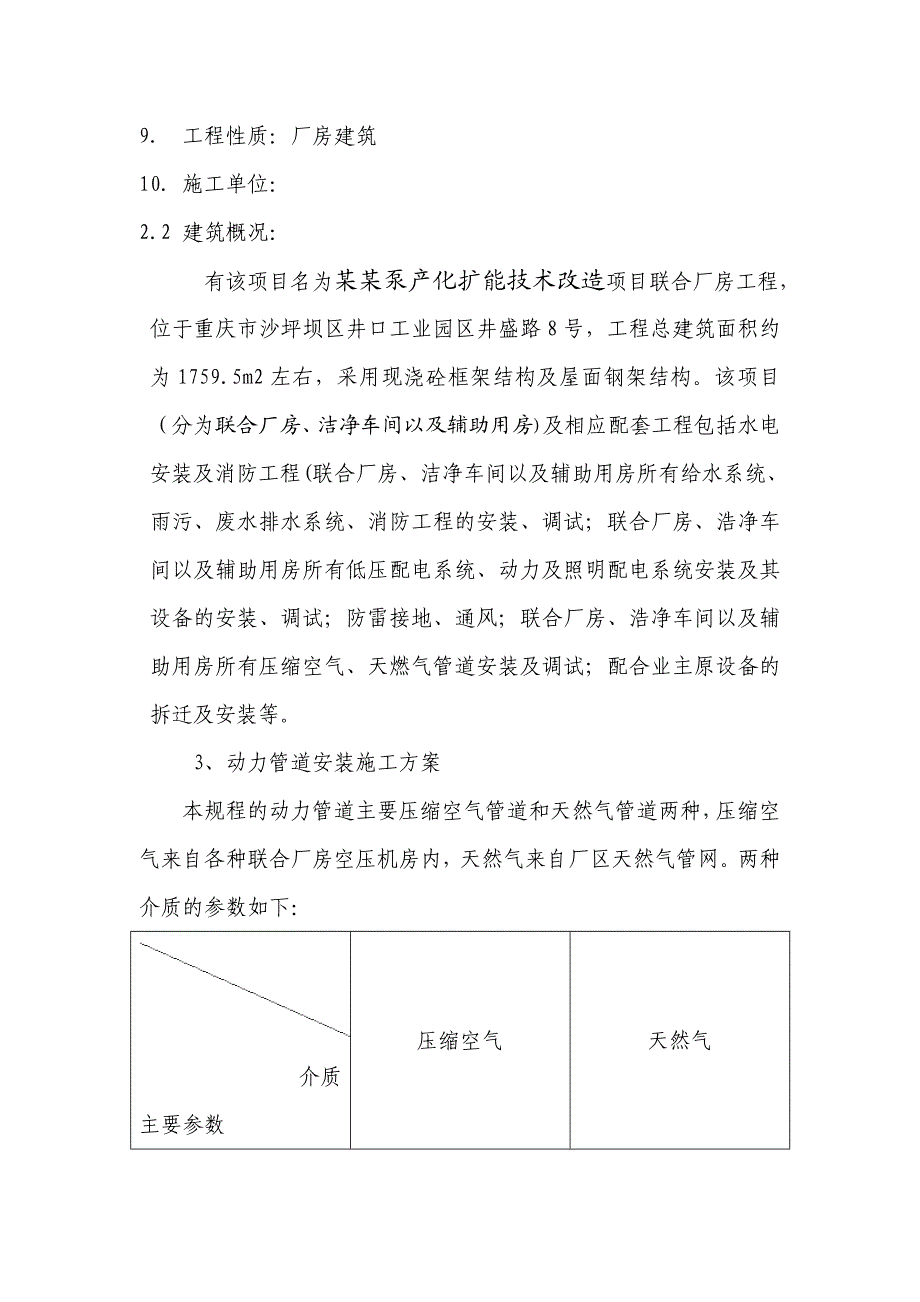 9. 工程性质: 厂房建筑
10. 施工单位:
2.2 建筑概况:
有该项目名为某某泵产化扩能技术改造项目联合厂房工程,
位于重庆市沙坪坝区井口工业园区井盛路 8 号, 工程总建筑面积约
为 1759.5m2 左右, 采用现浇砼框架结构及屋面钢架结构。该项目
(分为联合厂房、洁净车间以及辅助用房)及相应配套工程包括水电
安装及消防工程(联合厂房、洁净车间以及辅助用房所有给水系统、
雨污、废水排水系统、消防工程的安装、调试; 联合厂房、浩净车
间以及辅助用房所有低压配电系统、动力及照明配电系统安装及其
设备的安装、调试; 防雷接地、通风; 联合厂房、浩净车间以及辅
助用房所有压缩空气、天燃气管道安装及调试; 配合业主原设备的
拆迁及安装等。
3、动力管道安装施工方案
本规程的动力管道主要压缩空气管道和天然气管道两种, 压缩空
气来自各种联合厂房空压机房内, 天然气来自厂区天然气管网。两种
介质的参数如下:
介质
主要参数
压缩空气
天然气